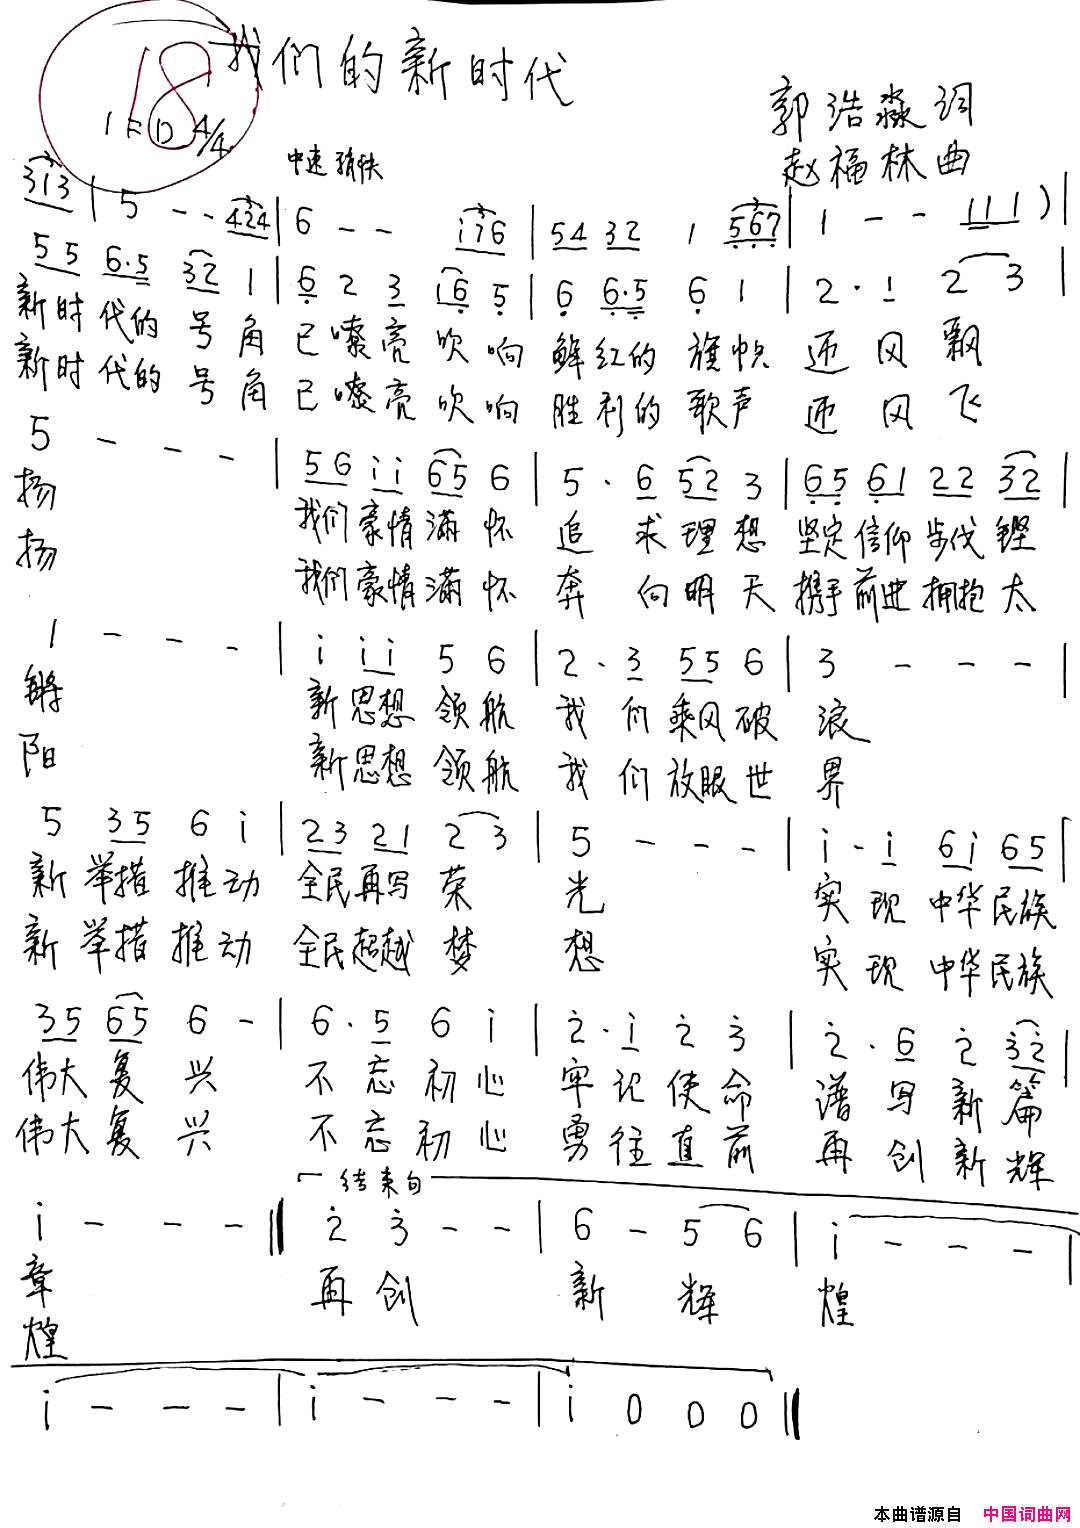 18 我们的新时代
1=D 4/4
中速稍快
郭浩淼词
赵福林曲
313 | 5 - - 424 | 6 - - i76 | 54 32 1 567 | 1 - - 111 ) |
55 6·5 32 1 | 6 2 3 i6 5 | 6 6·5 6 1 | 2· 1 2 3 |
新时代的号角已嘹亮吹响鲜红的旗帜迎风飘
新时代的号角已嘹亮吹响胜利的歌声迎风飞
5 - - - | 56 ii 65 6 | 5· 6 52 3 | 65 61 22 32 |
扬 我们豪情满怀追求理想坚定信仰步伐铿
扬 我们豪情满怀奔向明天携手前进拥抱太
1 - - - | i ii 5 6 | 2· 3 55 6 | 3 - - - |
锵 新思想领航我们乘风破浪
阳 新思想领航我们放眼世界
5 35 6 i | 23 21 2 3 | 5 - - - | i· i 6i 65 |
新举措推动全民再写荣光 实现中华民族
新举措推动全民超越梦想 实现中华民族
35 65 6 - | 6· 5 6 i | 2· i 2 3 | 2· 6 2 32 |
伟大复兴 不忘初心牢记使命谱写新篇
伟大复兴 不忘初心勇往直前再创新辉
结束句
i - - - || 2 3 - - | 6 - 5 6 | i - - - |
章 再创 新辉煌
煌
i - - - | i - - - | i 0 0 0 ||
本曲谱源自 中国词曲网